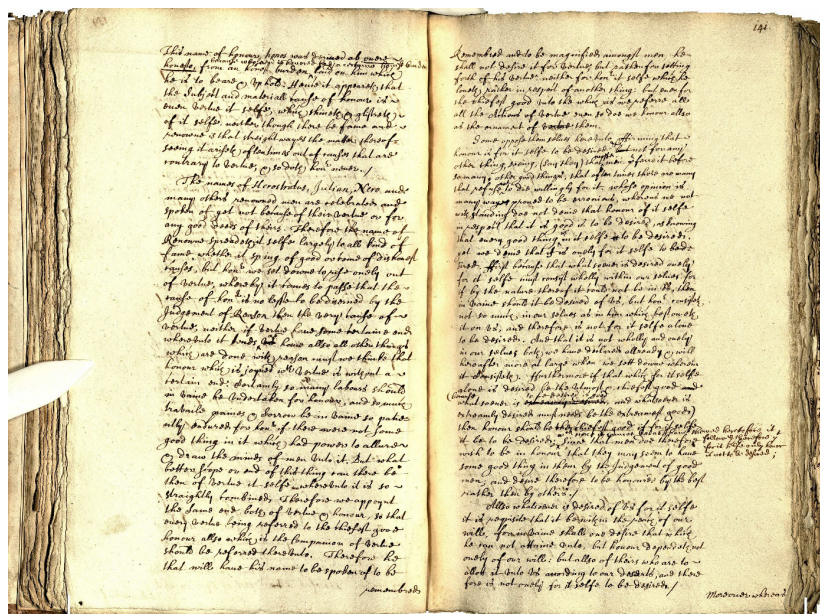 This name of honour, honos was deriued ab onere
honesto, from an honest burden, laid on him which
he is to beare & vphold. Hence it appeares that
the subject and materiall cause of honour is
euen vertue it selfe, which shineth & glistreth
of it selfe, neither though there be fame and
renowne is that streightwayes the matter thereof
seeing it ariseth oftentimes out of causes that are
contrary to vertue, & so doth honr neuer./
The names of Herostratus, Julian, Nero and
many others renowned men are celebrated and
spoken of yet not because of their vertue or for
any good deeds of theirs. Therefore the name of
Renowne spreadeth it selfe largely to all kind of
fame whether it spring of good or come of dishonest
causes, but honr we set downe to rise onely out
of vertue, whereby it comes to passe that the
cause of honr is no lesse to be discerned by the
Judgement of Reason then the very cause of
vertue, neither if vertue haue some certaine end
whereunto it tends, as haue allso all other things
which are done with reason must we thinke that
honour which is joyned wth vertue is without a
certain end. Certainly so many labours should
in vaine be vndertaken for honour, and so much
trauaile paines & sorrow be in vaine so patie-
ntly endured for honr if there were not some
good thing in it which had power to allure
& draw the minds of men vnto it. But what
better scope or end of this thing can there be
then of vertue it selfe whereunto it is so
straightly combined. Therefore we appoint
the same end both of vertue & honour, so that
euery vertue being referred to the chiefest good
honour allso which is the companion of vertue
should be referred thereunto. Therefore he
that will haue his name to be spoken of to be
remembred
141.
Remembred and to be magnified amongst men he
shall not desire it for vertue but rather for setting
forth of his vertue: neither for honr it selfe which he
loueth rather in respect of another thing: but euen for
the chiefest good vnto the which as we referre all
all the actions of vertue euen so doe we honour allso
as the ornament of them.
Some oppose them selues herevnto affirming that
honour is for it selfe to be desired not for any
other thing, seeing (say they) men preferre it before
so many other good things, that often times there are many
that refuse not to die willingly for it, whose opinion is
many wayes proued to be erronious, wherein we not
withstanding doe not denie that honour of it selfe
in respect that it is good is to be desired, as knowing
that euery good thing in it selfe is to be desired.
yet we denie that it is onely for it selfe to be de-
sired. First because that what soeuer is desired onely
for it selfe must consist wholly within our selues, for
if by the nature thereof it could not be in vs, then
in vaine should it be desired of vs, but honr consisteth
not so much in our selues as in him which bestoweth
it on vs, and therefore is not for it selfe alone
to be desired. And that it is not wholly and onely
in our selues both we haue declared allready & will
hereafter more at large when we sett downe wherein
it consisteth. Furthermore if that which for it selfe
alone is desired be the vtmost & chiefest good and
(because
what soeuer is and whatsoeuer is
extreamly desired must needs be the extreemest good)
then honour should be the chiefest good if for it selfe
it be to be desired. Since that men doe therefore
wish to be in honour that they may seem to haue
some good thing in them by the Judgement of good
men, and desire therefore to be honoured by the best
rather then by others./
it followes therefore
for it selfe only honr
is not to be desired;
Allso whatsoeuer is desired of vs for it selfe
it is requisite that it be within the power of our
wills, for in vaine shall one desire that which
he can not attaine vnto, but honour dependeth not
onely of our will: but allso of theirs who are to
allow it vnto vs according to our deserts, and there
fore is not onely for it selfe to be desired./
Moreouer whereas